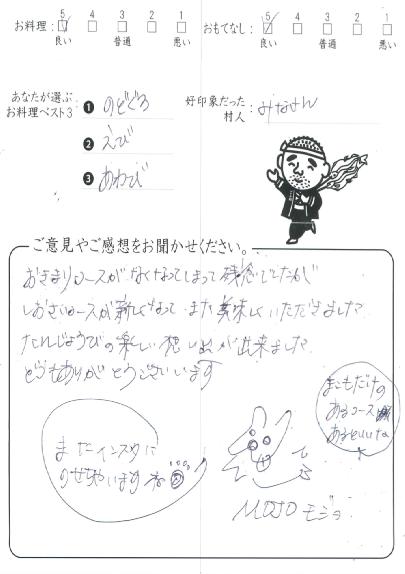 お料理: 5 4 3 2 1
良い 普通 悪い
おもてなし: 5 4 3 2 1
良い 普通 悪い
あなたが選ぶ
お料理ベスト3
❶ のどぐろ
❷ えび
❸ あわび
好印象だった
村人: みなさん
ご意見やご感想をお聞かせください。
おきまりコースがなくなってしまって残念でしたが
しおさいコースが新しくなって、また美味しくいただきました
たんじょうびの楽しい想い出が出来ました
どうもありがとうございいます
まこもだけの
あるコース
あるといいな
またインスタに
のせちゃいますね
MOJO モジョ